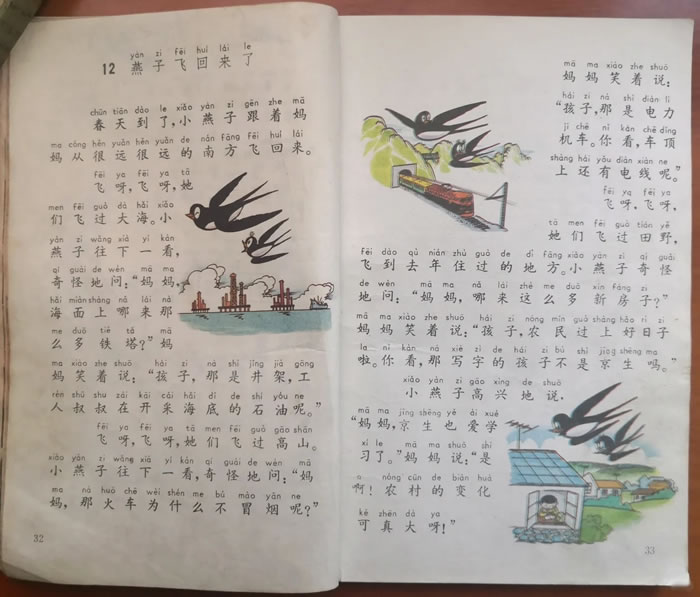 yàn zi fēi huí lái le
12 燕子飞回来了
chūn tiān dào le xiǎo yàn zi gēn zhe mā
春天到了,小燕子跟着妈
ma cóng hěn yuǎn hěn yuǎn de nán fāng fēi huí lái
妈从很远很远的南方飞回来。
fēi ya fēi ya tā
飞呀,飞呀,她
men fēi guò dà hǎi xiǎo
们飞过大海。小
yàn zi wǎng xià yí kàn
燕子往下一看,
qí guài de wèn mā ma
奇怪地问:“妈妈,
hǎi miàn shàng nǎ lái nà
海面上哪来那
me duō tiě tǎ mā
么多铁塔?”妈
ma xiào zhe shuō hái zi nà shì jǐng jià gōng
妈笑着说:“孩子,那是井架,工
rén shū shu zài kāi cǎi hǎi dǐ de shí yóu ne
人叔叔在开采海底的石油呢。”
fēi ya fēi ya tā men fēi guò gāo shān
飞呀,飞呀,她们飞过高山。
xiǎo yàn zi wǎng xià yí kàn qí guài de wèn mā
小燕子往下一看,奇怪地问:“妈
ma nà huǒ chē wèi shén me bú mào yān ne
妈,那火车为什么不冒烟呢?”
32
mā ma xiào zhe shuō
妈妈笑着说:
hái zi nà shì diàn lì
“孩子,那是电力
jī chē nǐ kàn chē dǐng
机车。你看,车顶
shàng hái yǒu diàn xiàn ne
上还有电线呢。”
fēi ya fēi ya
飞呀,飞呀,
tā men fēi guò tián yě
她们飞过田野,
fēi dào qù nián zhù guò de dì fāng xiǎo yàn zi qí guài
飞到去年住过的地方。小燕子奇怪
de wèn mā ma nǎ lái zhè me duō xīn fáng zi
地问:“妈妈,哪来这么多新房子?”
mā ma xiào zhe shuō hái zi nóng mín guò shàng hǎo rì zi
妈妈笑着说:“孩子,农民过上好日子
la nǐ kàn nà xiě zì de hái zi bú shì jīng shēng ma
啦。你看,那写字的孩子不是京生吗。”
xiǎo yàn zi gāo xìng de shuō
小燕子高兴地说,
mā ma jīng shēng yě ài xué
“妈妈,京生也爱学
xí le mā ma shuō shì
习了。”妈妈说:“是
a nóng cūn de biàn huà
啊!农村的变化
kě zhēn dà ya
可真大呀!”
33